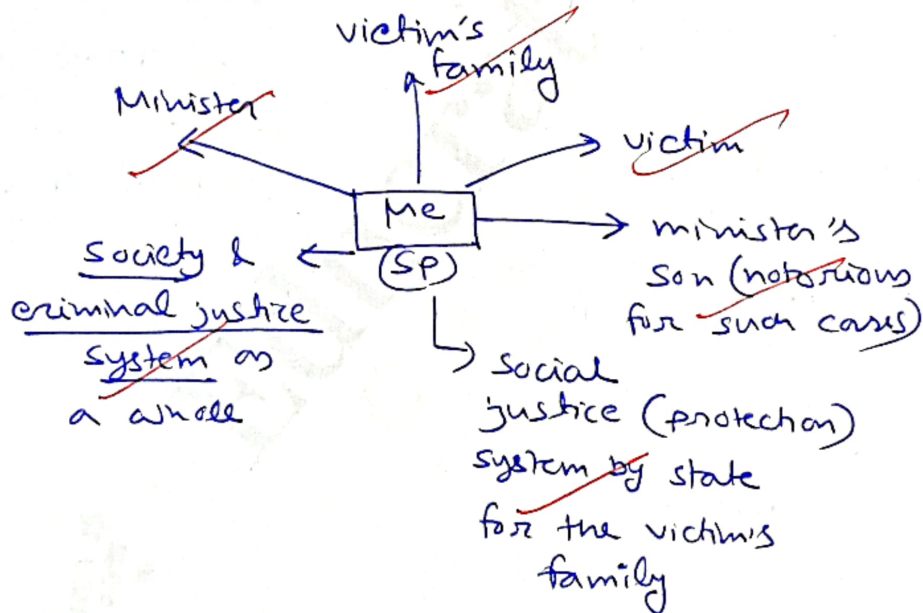 victim's
family
Minister
victim
Me
(SP)
minister's
son (notorious
for such cases)
Society &
criminal justice
system as
a whole
social
justice (protection)
system by state
for the victim's
family